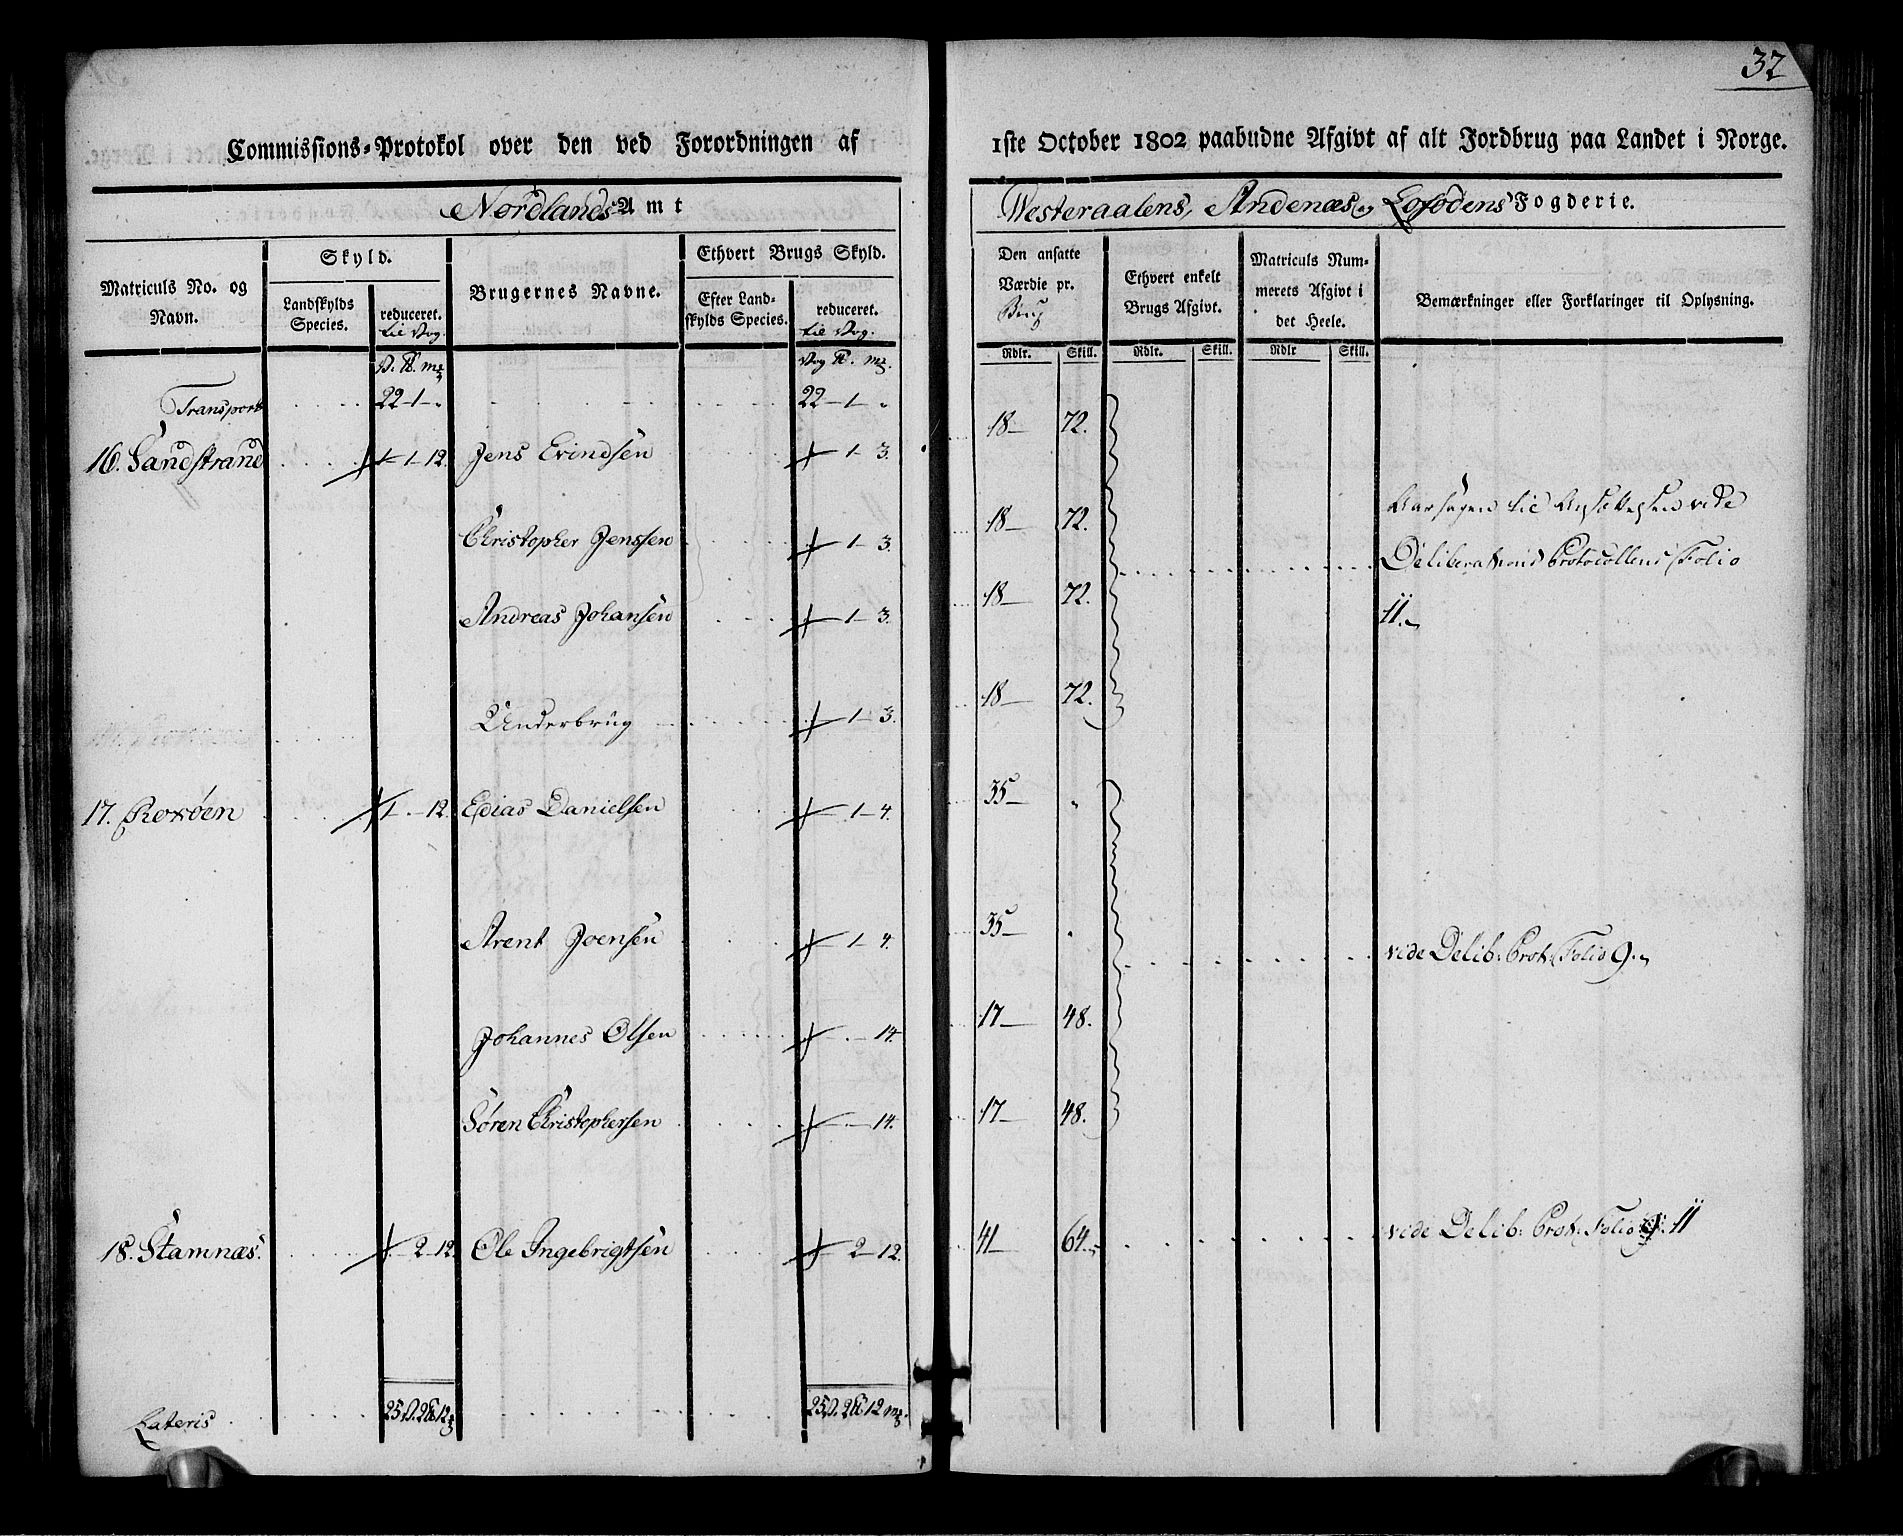 32
Commissions-Protokol over den ved Forordningen af 1ste October 1802 paabudne Afgivt af alt Jordbrug paa Landet i Norge.
Nordlands Amt
Westeraalens, Andenæs og Lofodens Fogderie.
Matriculs No. og Navn.
Skyld.
Landskylds Species.
reduceret. til Vog.
Brugernes Navne.
Ethvert Brugs Skyld.
Efter Landskylds Species.
reduceret. til Vog.
Den ansatte Værdie pr. Brug
Ethvert enkelt Brugs Afgivt.
Matriculs Nummerets Afgivt i det Heele.
Bemærkninger eller Forklaringer til Oplysning.
Rdlr. Skill. Rdlr. Skill. Rdlr Skill.
Transport 22-1-" 22-1-"
16. Sandstrand 1-1-12. Jens Erindsen 1-3. 18 72.
Christopher Jenssen 1-3. 18 72.
Andreas Johansen 1-3. 18 72.
Underbrug 1-3. 18 72.
til vide
Deliberations Protocollens Folio
11.
17. 1-12. Edias Danielsen 1-4. 35 "
Arent Joensen 1-4. 35 "
vide Delib: Prot: Folio 9.
Johannes Olsen 14. 17 48.
Søren Christophersen 14. 17 48.
18. Stamnæs. 2-12. Ole Ingebrigtsen 2-12. 41 64.
vide Delib: Prot: Folio 11
Lateris 25 V. 2 12 25 V. 2 12 mz.